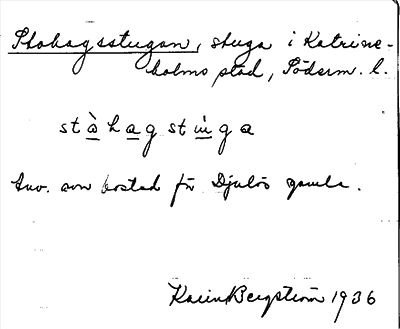 Stohagsstugan, stuga i Katrine-
holms stad, Söderm. l.
stàhagstùga
Anv. som bostad för Djulös gamla.
Karin Bergström 1936